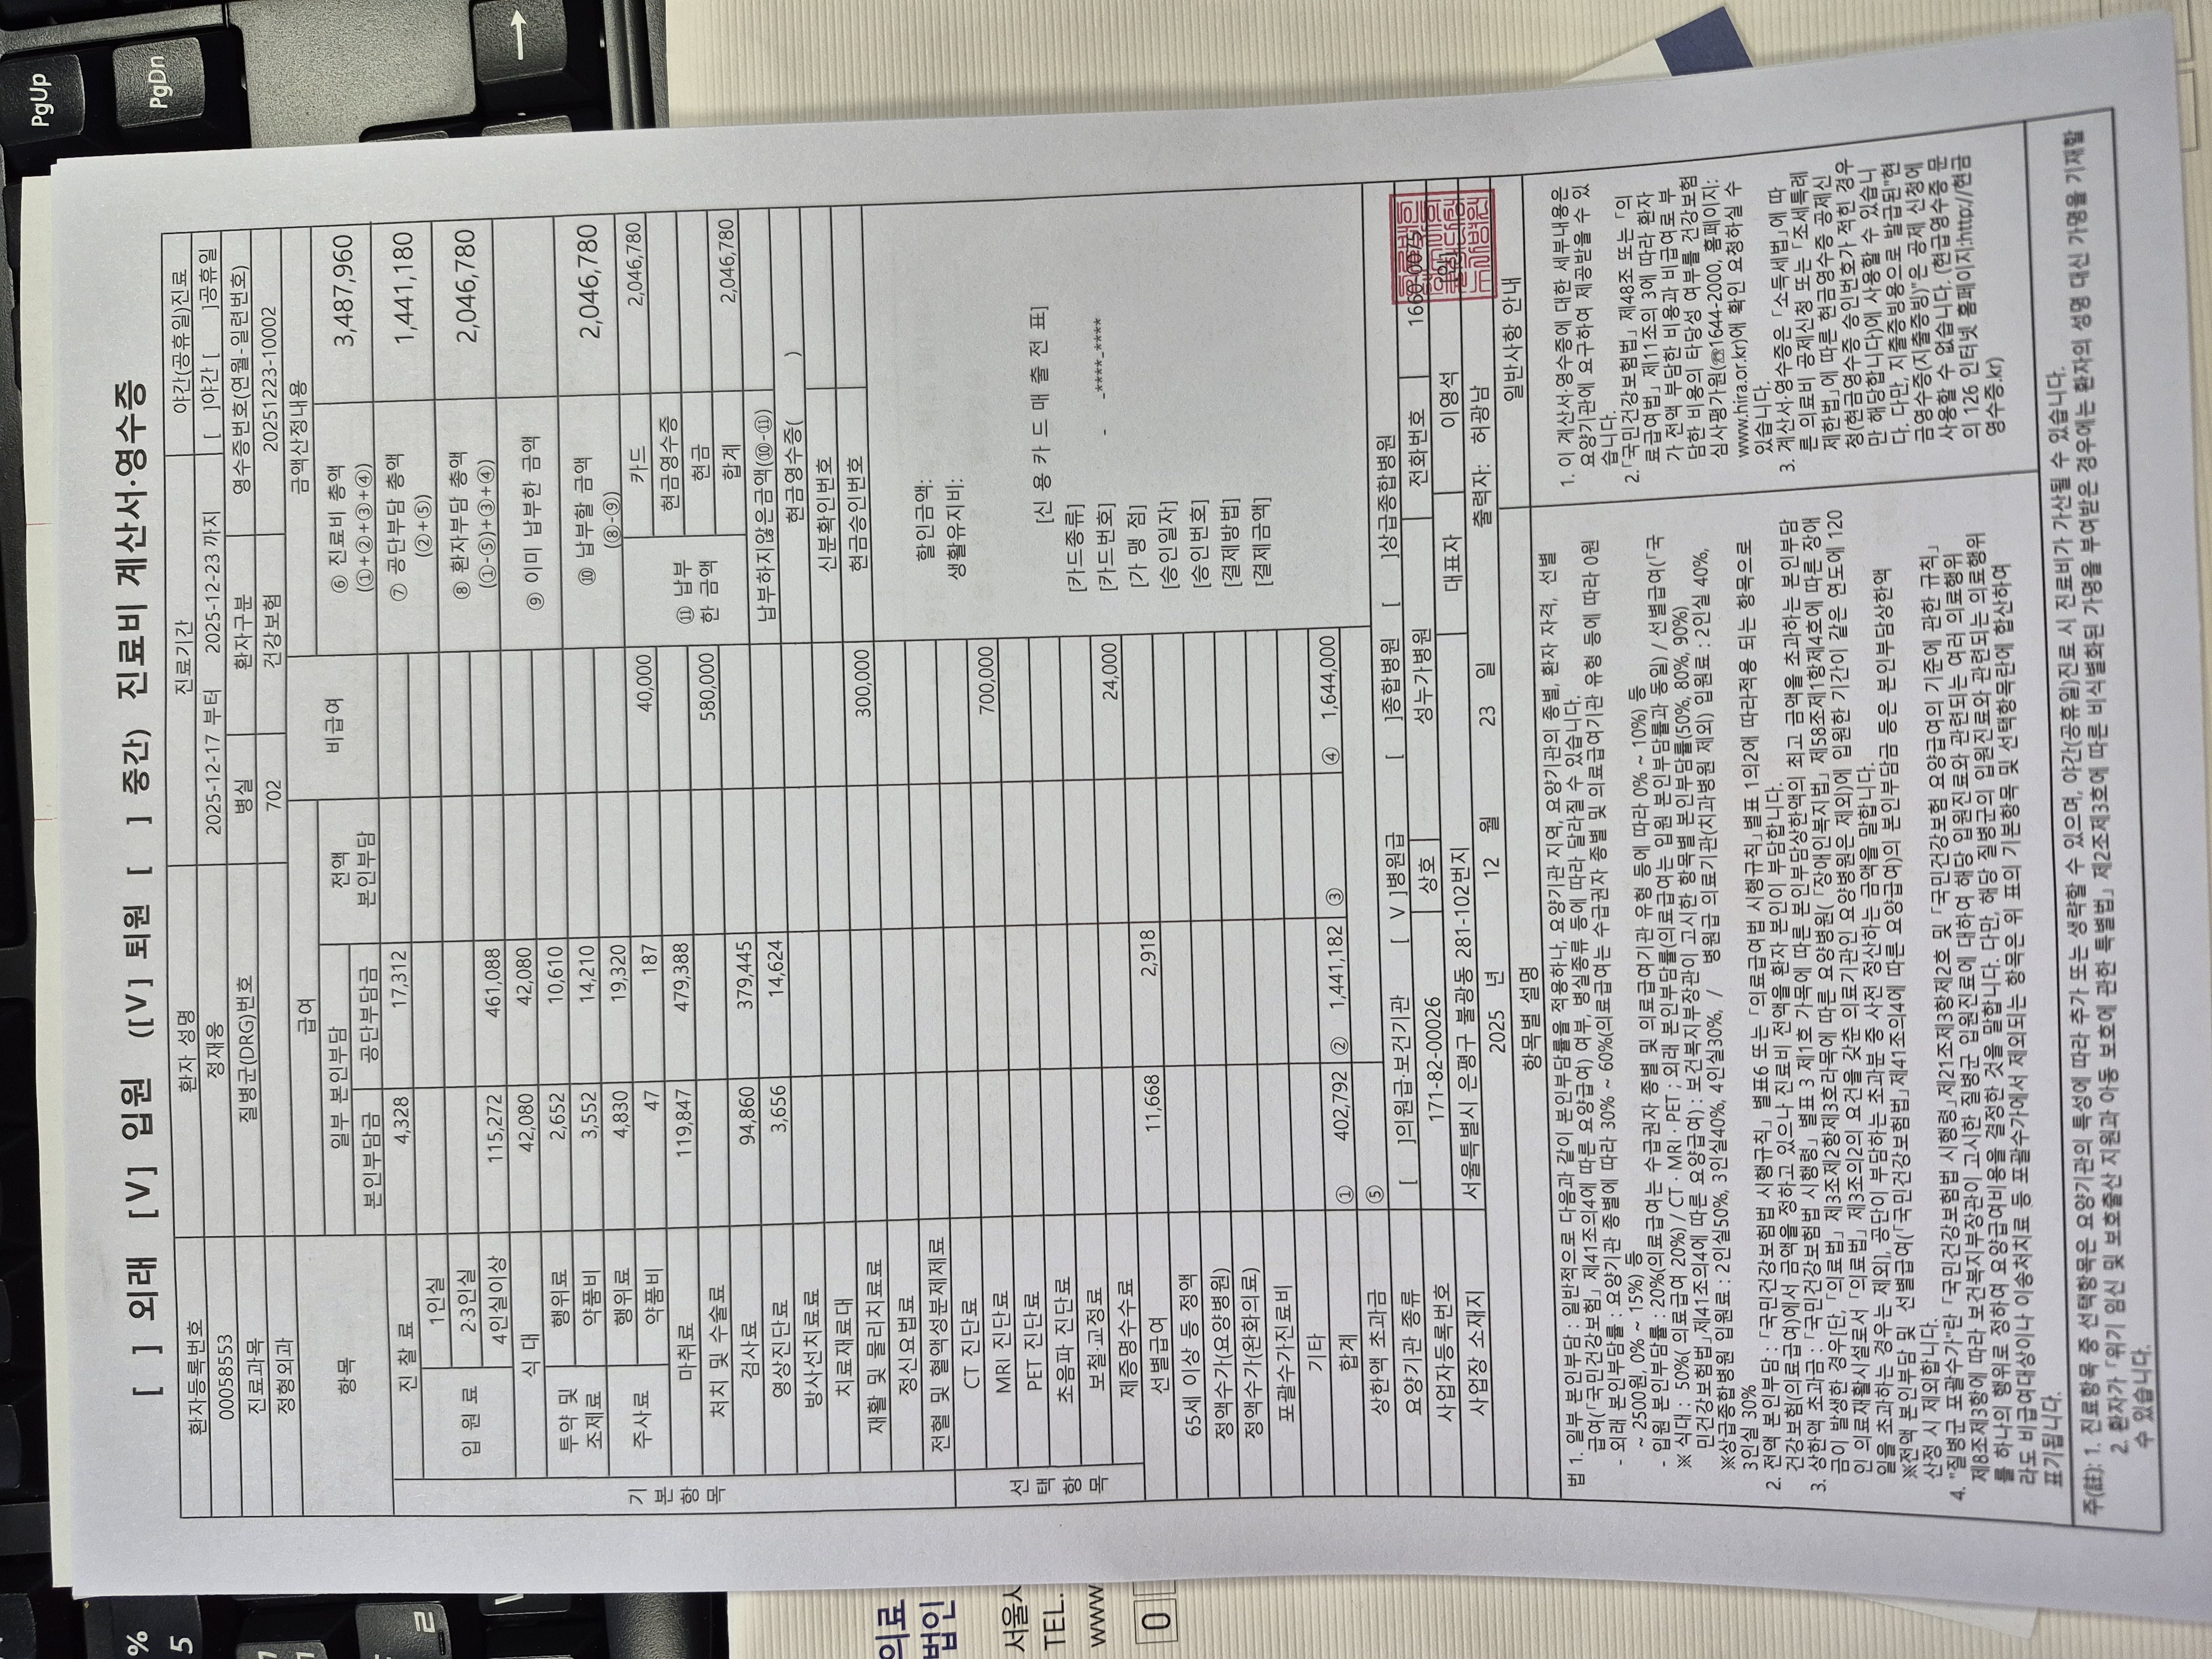 [ ] 외래 [V] 입원 ([V] 퇴원 [ ] 중간) 진료비 계산서·영수증
환자등록번호 환자 성명 진료기간 야간(공휴일)진료
00058553 정재웅 2025-12-17 부터 2025-12-23 까지 [ ]야간 [ ]공휴일
진료과목 질병군(DRG)번호 병실 환자구분 영수증번호(연월-일련번호)
정형외과 702 건강보험 20251223-10002
항목 급여 비급여 금액산정내용
일부 본인부담 전액 본인부담
본인부담금 공단부담금
기본항목
진찰료 4,328 17,312
입원료 1인실
2·3인실
4인실이상 115,272 461,088
식대 42,080 42,080
투약 및 조제료 행위료 2,652 10,610
약품비 3,552 14,210
주사료 행위료 4,830 19,320
약품비 47 187 40,000
마취료 119,847 479,388
처치 및 수술료 580,000
검사료 94,860 379,445
영상진단료 3,656 14,624
방사선치료료
치료재료대 300,000
재활 및 물리치료료
정신요법료
전혈 및 혈액성분제제료
선택항목
CT 진단료 700,000
MRI 진단료
PET 진단료
초음파 진단료
보철·교정료 24,000
제증명수수료
선별급여 11,668 2,918
65세 이상 등 정액
정액수가(요양병원)
정액수가(완화의료)
포괄수가진료비
기타
합계 ① 402,792 ② 1,441,182 ③ ④ 1,644,000
상한액 초과금 ⑤
⑥ 진료비 총액 3,487,960
(①+②+③+④)
⑦ 공단부담 총액 1,441,180
(②+⑤)
⑧ 환자부담 총액 2,046,780
(①-⑤)+③+④)
⑨ 이미 납부한 금액
⑩ 납부할 금액 2,046,780
(⑧-⑨)
⑪ 납부한 금액 카드 2,046,780
현금영수증
현금
합계 2,046,780
납부하지않은금액(⑩-⑪)
현금영수증( )
신분확인번호
현금승인번호
할인금액:
생활유지비:
[신 용 카 드 매 출 전 표]
[카드종류]
[카드번호] - -****-****
[가 맹 점]
[승인일자]
[승인번호]
[결제방법]
[결제금액]
요양기관 종류 [ ]의원급·보건기관 [ V ]병원급 [ ]종합병원 [ ]상급종합병원
사업자등록번호 171-82-00026 상호 성누가병원 전화번호
사업장 소재지 서울특별시 은평구 불광동 281-102번지 대표자 이영석
2025 년 12 월 23 일 출력자: 허광남
항목별 설명
법 1. 일부 본인부담 : 일반적으로 다음과 같이 본인부담률을 적용하나, 요양기관 지역, 요양기관의 종별, 환자 자격, 선별
급여(「국민건강보험」 제41조의4에 따른 요양급여) 여부, 병실종류 등에 따라 달라질 수 있습니다.
- 외래 본인부담률 : 요양기관 종별에 따라 30% ~ 60%(의료급여는 수급권자 종별 및 의료급여기관 유형 등에 따라 0원
~ 2500원, 0% ~ 15%) 등
- 입원 본인부담률 : 20%(의료급여는 수급권자 종별 및 의료급여기관 유형 등에 따라 0% ~ 10%) 등
※ 식대 : 50%( 의료급여 20%)/ CT · MRI · PET ; 외래 본인부담률(의료급여는 입원 본인부담률과 동일) / 선별급여(「국
민건강보험법」제41조의4에 따른 요양급여) : 보건복지부장관이 고시한 항목별 본인부담률(50%, 80%, 90%)
※상급종합병원 입원료 : 2인실50%, 3인실40%, 4인실30%, / 병원급 의료기관(치과병원 제외) 입원료 : 2인실 40%,
3인실 30%
2. 전액 본인부담 : 「국민건강보험법 시행규칙」 별표6 또는 「의료급여법 시행규칙」별표 1의2에 따라적용 되는 항목으로
건강보험(의료급여)에서 금액을 정하고 있으나 진료비 전액을 환자 본인이 부담합니다.
3. 상한액 초과금 : 「국민건강보험법 시행령」 별표 3 제1호 가목에 따른 본인부담상한액의 최고 금액을 초과하는 본인부담
금이 발생한 경우[단, 「의료법」 제3조제2항제3호라목에 따른 요양병원(「장애인복지법」 제58조제1항제4호에 따른 장애
인 의료재활시설로서 「의료법」 제3조의2의 요건을 갖춘 의료기관인 요양병원은 제외)에 입원한 기간이 같은 연도에 120
일을 초과하는 경우는 제외], 공단이 부담하는 초과분 중 사전 정산하는 금액을 말합니다.
※전액 본인부담 및 선별급여(「국민건강보험법」제41조의4에 따른 요양급여)의 본인부담금 등은 본인부담상한액
산정 시 제외합니다.
4. "질병군 포괄수가"란 「국민건강보험법 시행령」제21조제3항제2호 및 「국민건강보험 요양급여의 기준에 관한 규칙」
제8조제3항에 따라 보건복지부장관이 고시한 질병군 입원진료에 대하여 해당 입원진료와 관련되는 여러 의료행위
를 하나의 행위로 정하여 요양급여비용을 결정한 것을 말합니다. 다만, 해당 질병군의 입원진료와 관련되는 의료행위
라도 비급여대상이나 이송처치료 등 포괄수가에서 제외되는 항목은 위 표의 기본항목 및 선택항목란에 합산하여
표기됩니다.
일반사항 안내
1. 이 계산서·영수증에 대한 세부내용은
요양기관에 요구하여 제공받을 수 있
습니다.
2.「국민건강보험법」 제48조 또는 「의
료급여법」 제11조의 3에 따라 환자
가 전액 부담한 비용과 비급여로 부
담한 비용의 타당성 여부를 건강보험
심사평가원(☏1644-2000, 홈페이지:
www.hira.or.kr)에 확인 요청하실 수
있습니다.
3. 계산서·영수증은 「소득세법」에 따
른 의료비 공제신청 또는 「조세특례
제한법」에 따른 현금영수증 공제신
청(현금영수증 승인번호가 적힌 경우
만 해당합니다)에 사용할 수 있습니
다. 다만, 지출증빙용으로 발급된"현
금영수증(지출증빙)"은 공제 신청에
사용할 수 없습니다. (현금영수증 문
의 126 인터넷 홈페이지:http://현금
영수증.kr)
주(註): 1. 진료항목 중 선택항목은 요양기관의 특성에 따라 추가 또는 생략할 수 있으며, 야간(공휴일)진료 시 진료비가 가산될 수 있습니다.
2. 환자가 「위기 임신 및 보호출산 지원과 아동 보호에 관한 특별법」 제2조제3호에 따른 비식별화된 가명을 부여받은 경우에는 환자의 성명 대신 가명을 기재할
수 있습니다.
PgUp
PgDn
→
%
5
ㄹ
의료
법인
서울시
TEL.
www
0